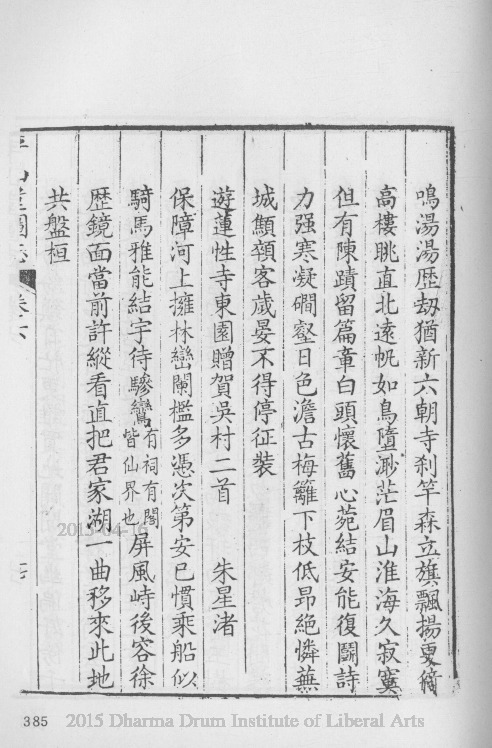 鳴湯湯歷劫猶新六朝寺刹竿森立旗飄揚夏倚
高樓眺直北遠帆如鳥墮渺茫眉山淮海久寂寞
但有陳蹟留篇章白頭懷舊心菀結安能復鬬詩
力强寒凝磵壑日色澹古梅籬下枝低昂絶憐蕪
城顦顇客歲晏不得停征裝
遊蓮性寺東園贈賀吳村二首 朱星渚
保障河上擁林巒闌檻多憑次第安已慣乘船似
騎馬雅能結宇待驂鸞有祠有閣皆仙界也屏風峙後容徐
歷鏡面當前許縱看直把君家湖一曲移來此地
共盤桓
山堂圖志 卷六
385
2013-04-16
2015 Dharma Drum Institute of Liberal Arts